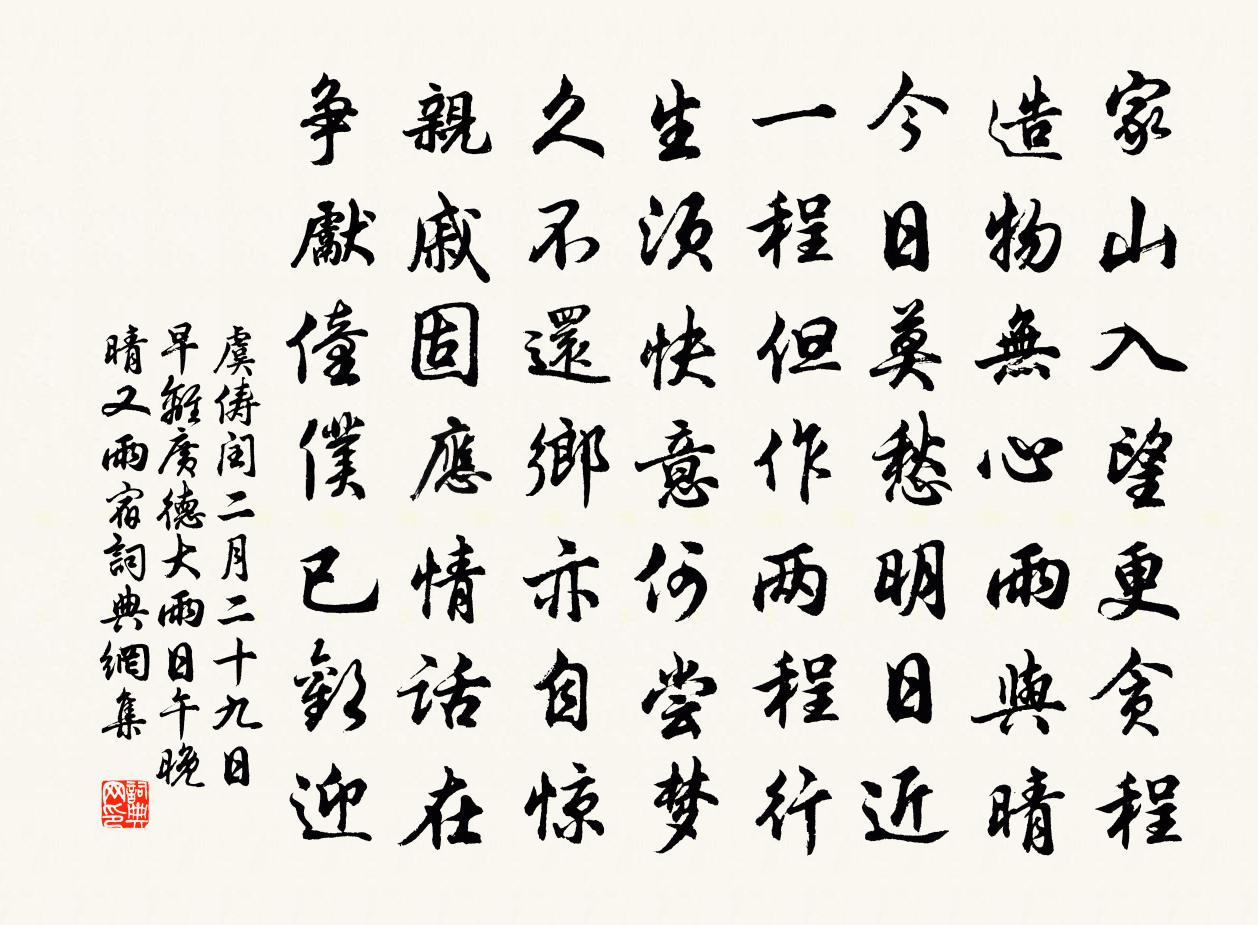 家山入望更贪程
造物無心雨與晴
今日莫愁明日近
一程但作两程行
生须快意何尝梦
久不還鄉亦自惊
親戚固應情話在
争獻僮僕已歡迎
虞俦閏二月二十九日
早離廣德大雨日午晚
晴又雨宿詞典網集
詞典网印